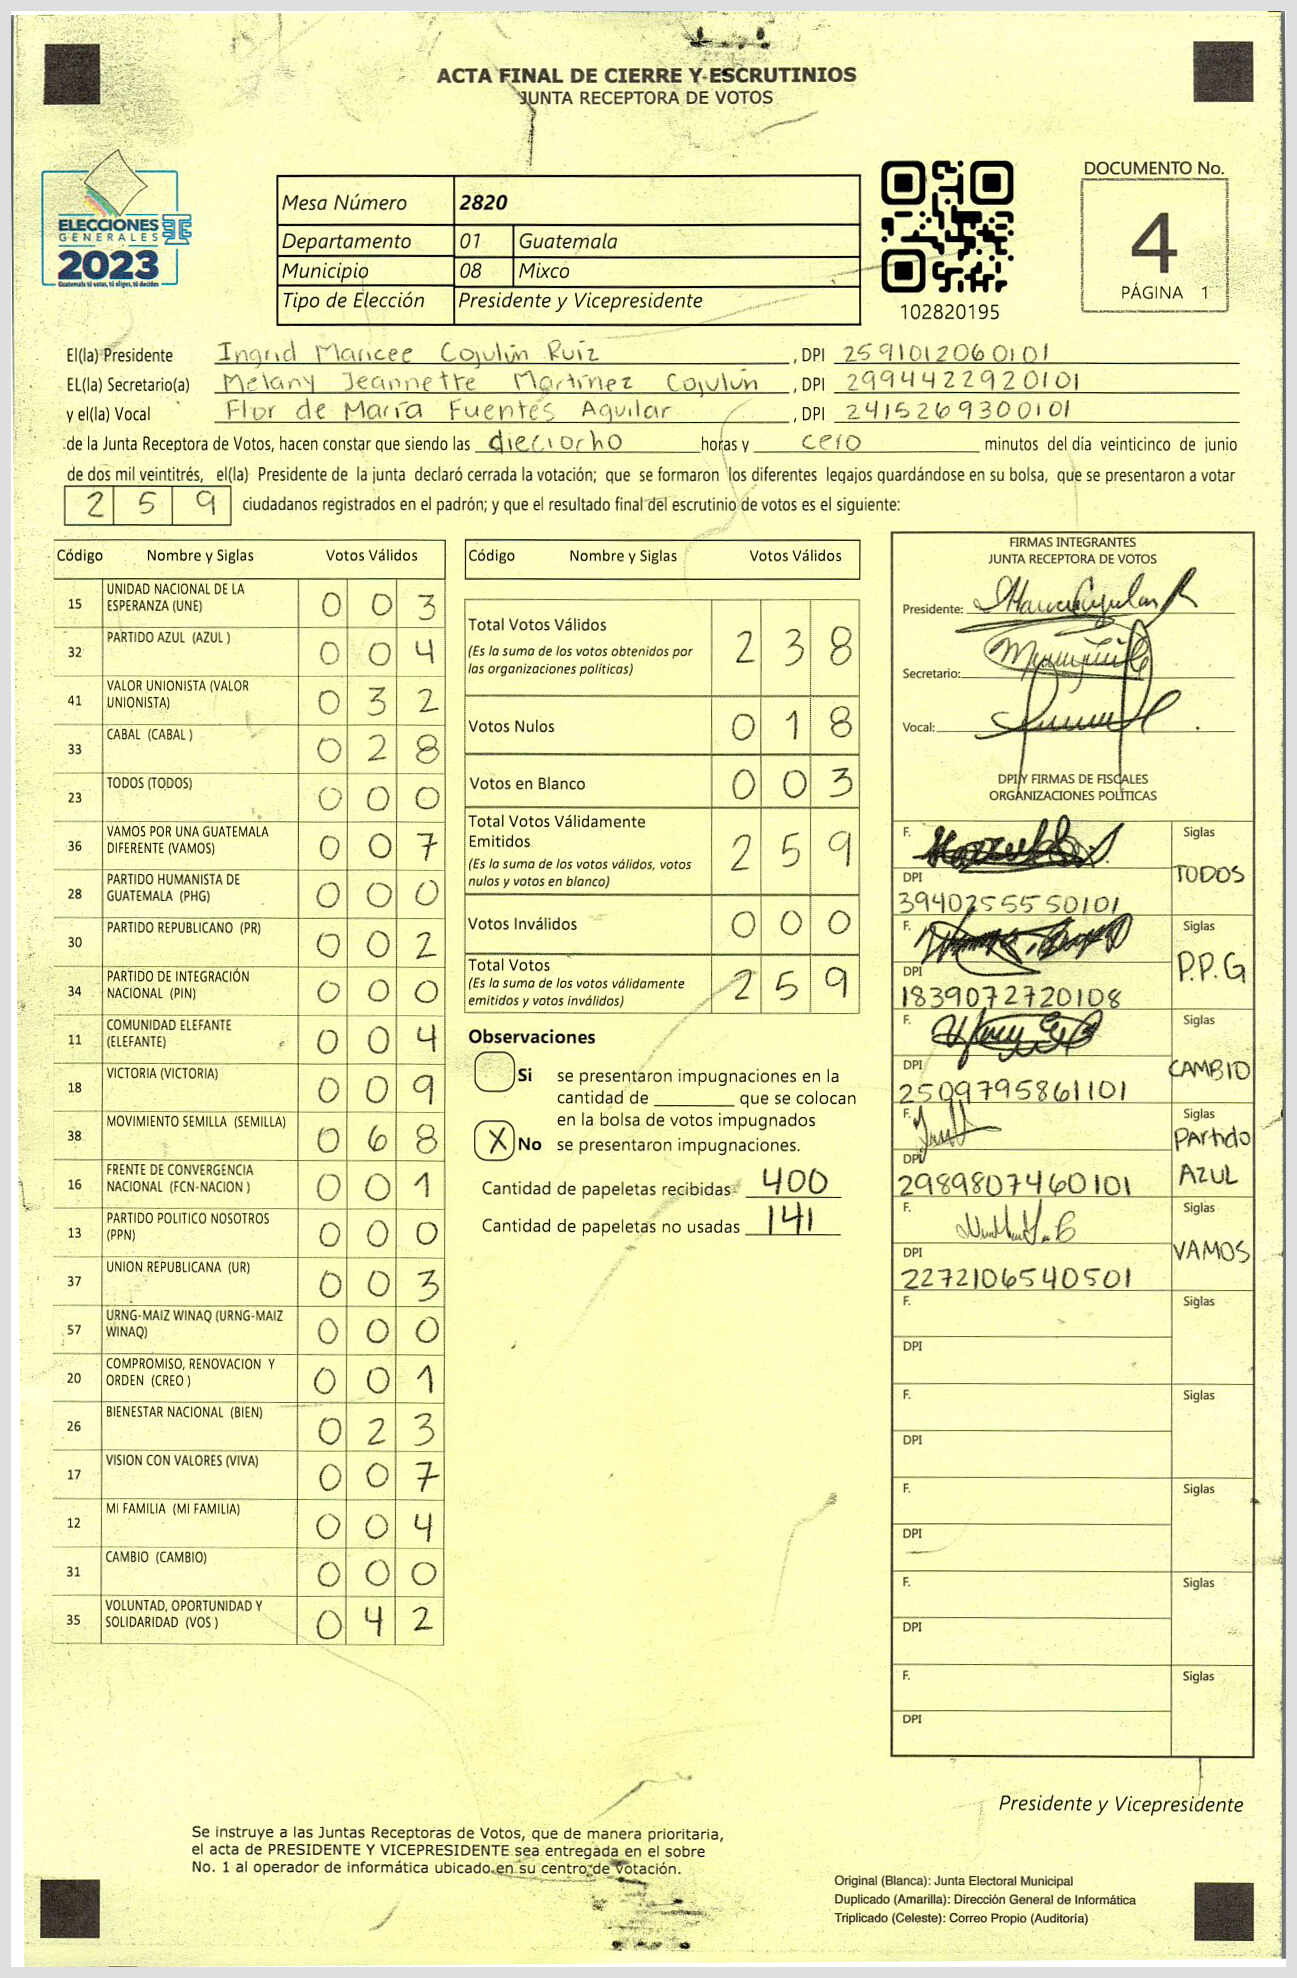 ACTA FINAL DE CIERRE Y ESCRUTINIOS
JUNTA RECEPTORA DE VOTOS
ELECCIONES
GENERALES
2023
Guatemala tú votas, tú eliges, tú decides
Mesa Número 2820
Departamento 01 Guatemala
Municipio 08 Mixco
Tipo de Elección Presidente y Vicepresidente
102820195
DOCUMENTO No.
4
PÁGINA 1
El(la) Presidente Ingrid Maricee Cojulún Ruíz , DPI 2591012060101
EL(la) Secretario(a) Melany Jeannette Martínez Cojulún , DPI 2994422920101
y el(la) Vocal Flor de María Fuentes Aguilar , DPI 2415269300101
de la Junta Receptora de Votos, hacen constar que siendo las dieciocho horas y cero minutos del día veinticinco de junio
de dos mil veintitrés, el(la) Presidente de la junta declaró cerrada la votación; que se formaron los diferentes legajos guardándose en su bolsa, que se presentaron a votar
2 5 9 ciudadanos registrados en el padrón; y que el resultado final del escrutinio de votos es el siguiente:
Código Nombre y Siglas Votos Válidos
15 UNIDAD NACIONAL DE LA
ESPERANZA (UNE) 0 0 3
32 PARTIDO AZUL (AZUL ) 0 0 4
41 VALOR UNIONISTA (VALOR
UNIONISTA) 0 3 2
33 CABAL (CABAL ) 0 2 8
23 TODOS (TODOS) 0 0 0
36 VAMOS POR UNA GUATEMALA
DIFERENTE (VAMOS) 0 0 7
28 PARTIDO HUMANISTA DE
GUATEMALA (PHG) 0 0 0
30 PARTIDO REPUBLICANO (PR) 0 0 2
34 PARTIDO DE INTEGRACIÓN
NACIONAL (PIN) 0 0 0
11 COMUNIDAD ELEFANTE
(ELEFANTE) 0 0 4
18 VICTORIA (VICTORIA) 0 0 9
38 MOVIMIENTO SEMILLA (SEMILLA) 0 6 8
16 FRENTE DE CONVERGENCIA
NACIONAL (FCN-NACION ) 0 0 1
13 PARTIDO POLITICO NOSOTROS
(PPN) 0 0 0
37 UNION REPUBLICANA (UR) 0 0 3
57 URNG-MAIZ WINAQ (URNG-MAIZ
WINAQ) 0 0 0
20 COMPROMISO, RENOVACION Y
ORDEN (CREO ) 0 0 1
26 BIENESTAR NACIONAL (BIEN) 0 2 3
17 VISION CON VALORES (VIVA) 0 0 7
12 MI FAMILIA (MI FAMILIA) 0 0 4
31 CAMBIO (CAMBIO) 0 0 0
35 VOLUNTAD, OPORTUNIDAD Y
SOLIDARIDAD (VOS ) 0 4 2
Código Nombre y Siglas Votos Válidos
Total Votos Válidos 2 3 8
(Es la suma de los votos obtenidos por
las organizaciones políticas)
Votos Nulos 0 1 8
Votos en Blanco 0 0 3
Total Votos Válidamente
Emitidos 2 5 9
(Es la suma de los votos válidos, votos
nulos y votos en blanco)
Votos Inválidos 0 0 0
Total Votos 2 5 9
(Es la suma de los votos válidamente
emitidos y votos inválidos)
Observaciones
Si se presentaron impugnaciones en la
cantidad de ________ que se colocan
en la bolsa de votos impugnados
X No se presentaron impugnaciones.
Cantidad de papeletas recibidas 400
Cantidad de papeletas no usadas 141
FIRMAS INTEGRANTES
JUNTA RECEPTORA DE VOTOS
Presidente:
Secretario:
Vocal:
DPI Y FIRMAS DE FISCALES
ORGANIZACIONES POLÍTICAS
F. Siglas
TODOS
DPI
3940255550101
F. Siglas
P.P.G
DPI
1839072720108
F. Siglas
CAMBIO
DPI
2509795861101
F. Siglas
Partido
AZUL
DPI
2989807460101
F. Siglas
VAMOS
DPI
2272106540501
F. Siglas
DPI
F. Siglas
DPI
F. Siglas
DPI
F. Siglas
DPI
F. Siglas
DPI
Presidente y Vicepresidente
Se instruye a las Juntas Receptoras de Votos, que de manera prioritaria,
el acta de PRESIDENTE Y VICEPRESIDENTE sea entregada en el sobre
No. 1 al operador de informática ubicado en su centro de Votación.
Original (Blanca): Junta Electoral Municipal
Duplicado (Amarilla): Dirección General de Informática
Triplicado (Celeste): Correo Propio (Auditoría)